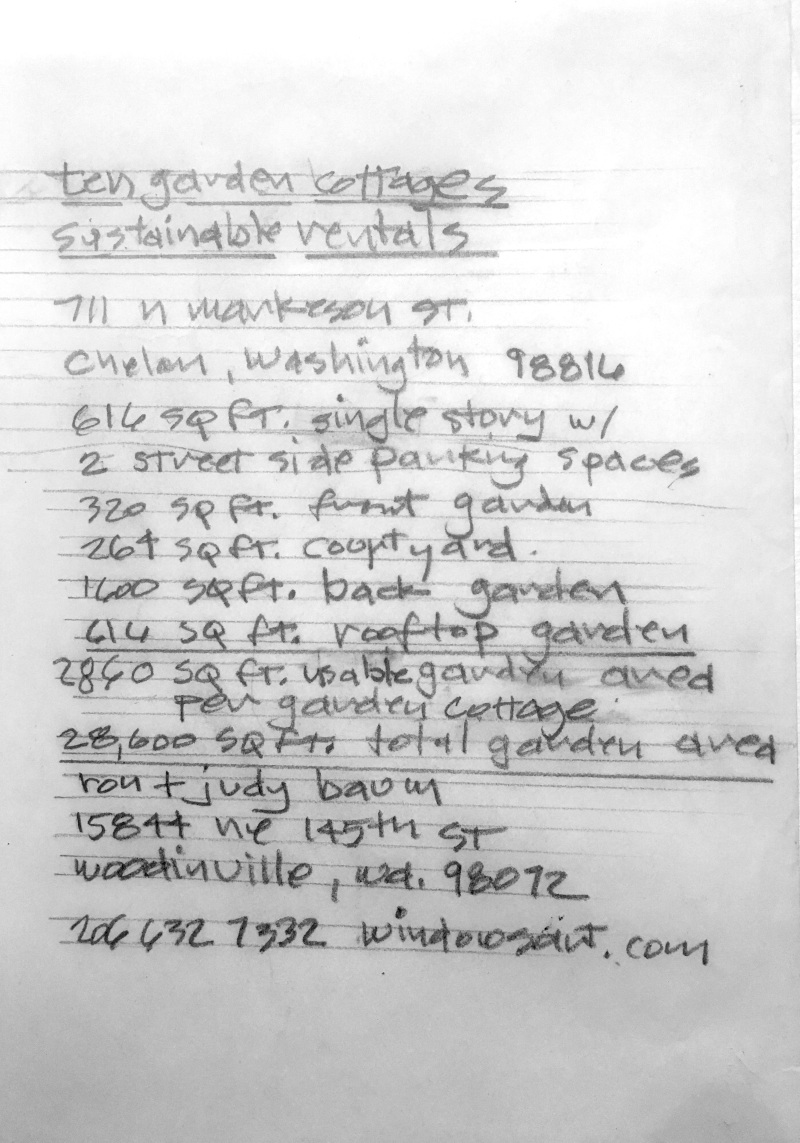 ten garden cottages
sustainable rentals
711 n markeson st.
Chelan, Washington 98816
616 SQ ft. single story w/
2 street side parking spaces
320 SQ ft. front garden
264 SQ ft. courtyard.
1600 SQ ft. back garden
616 SQ ft. rooftop garden
2860 SQ ft. usable garden area
per garden cottage
28,600 SQ Ft. total garden area
ron + judy baum
15844 ne 145th ST
woodinville, wa. 98072
206 632 7332 windowsart.com